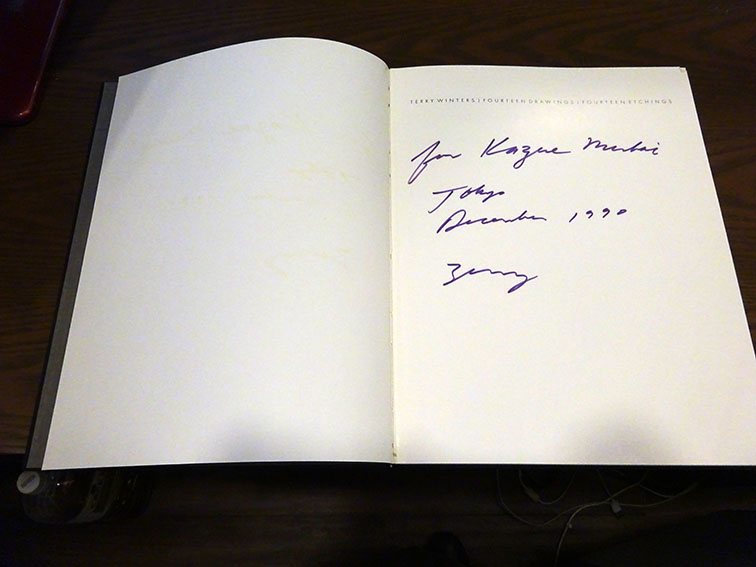 TERRY WINTERS | FOURTEEN DRAWINGS | FOURTEEN ETCHINGS
for Kazue
Tokyo
December 1990
Terry